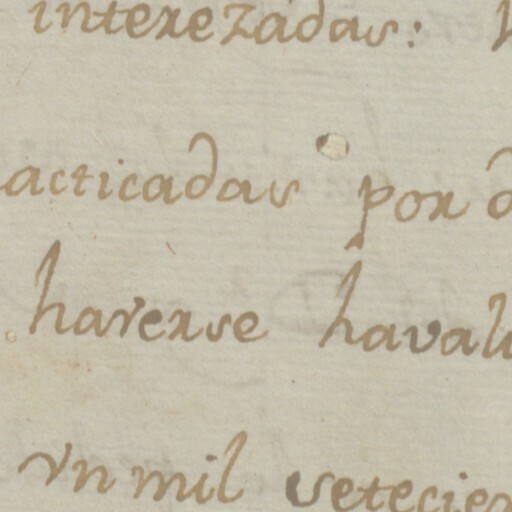 interezadas:
acticadas por
harerse havalu
Vn mil setecien